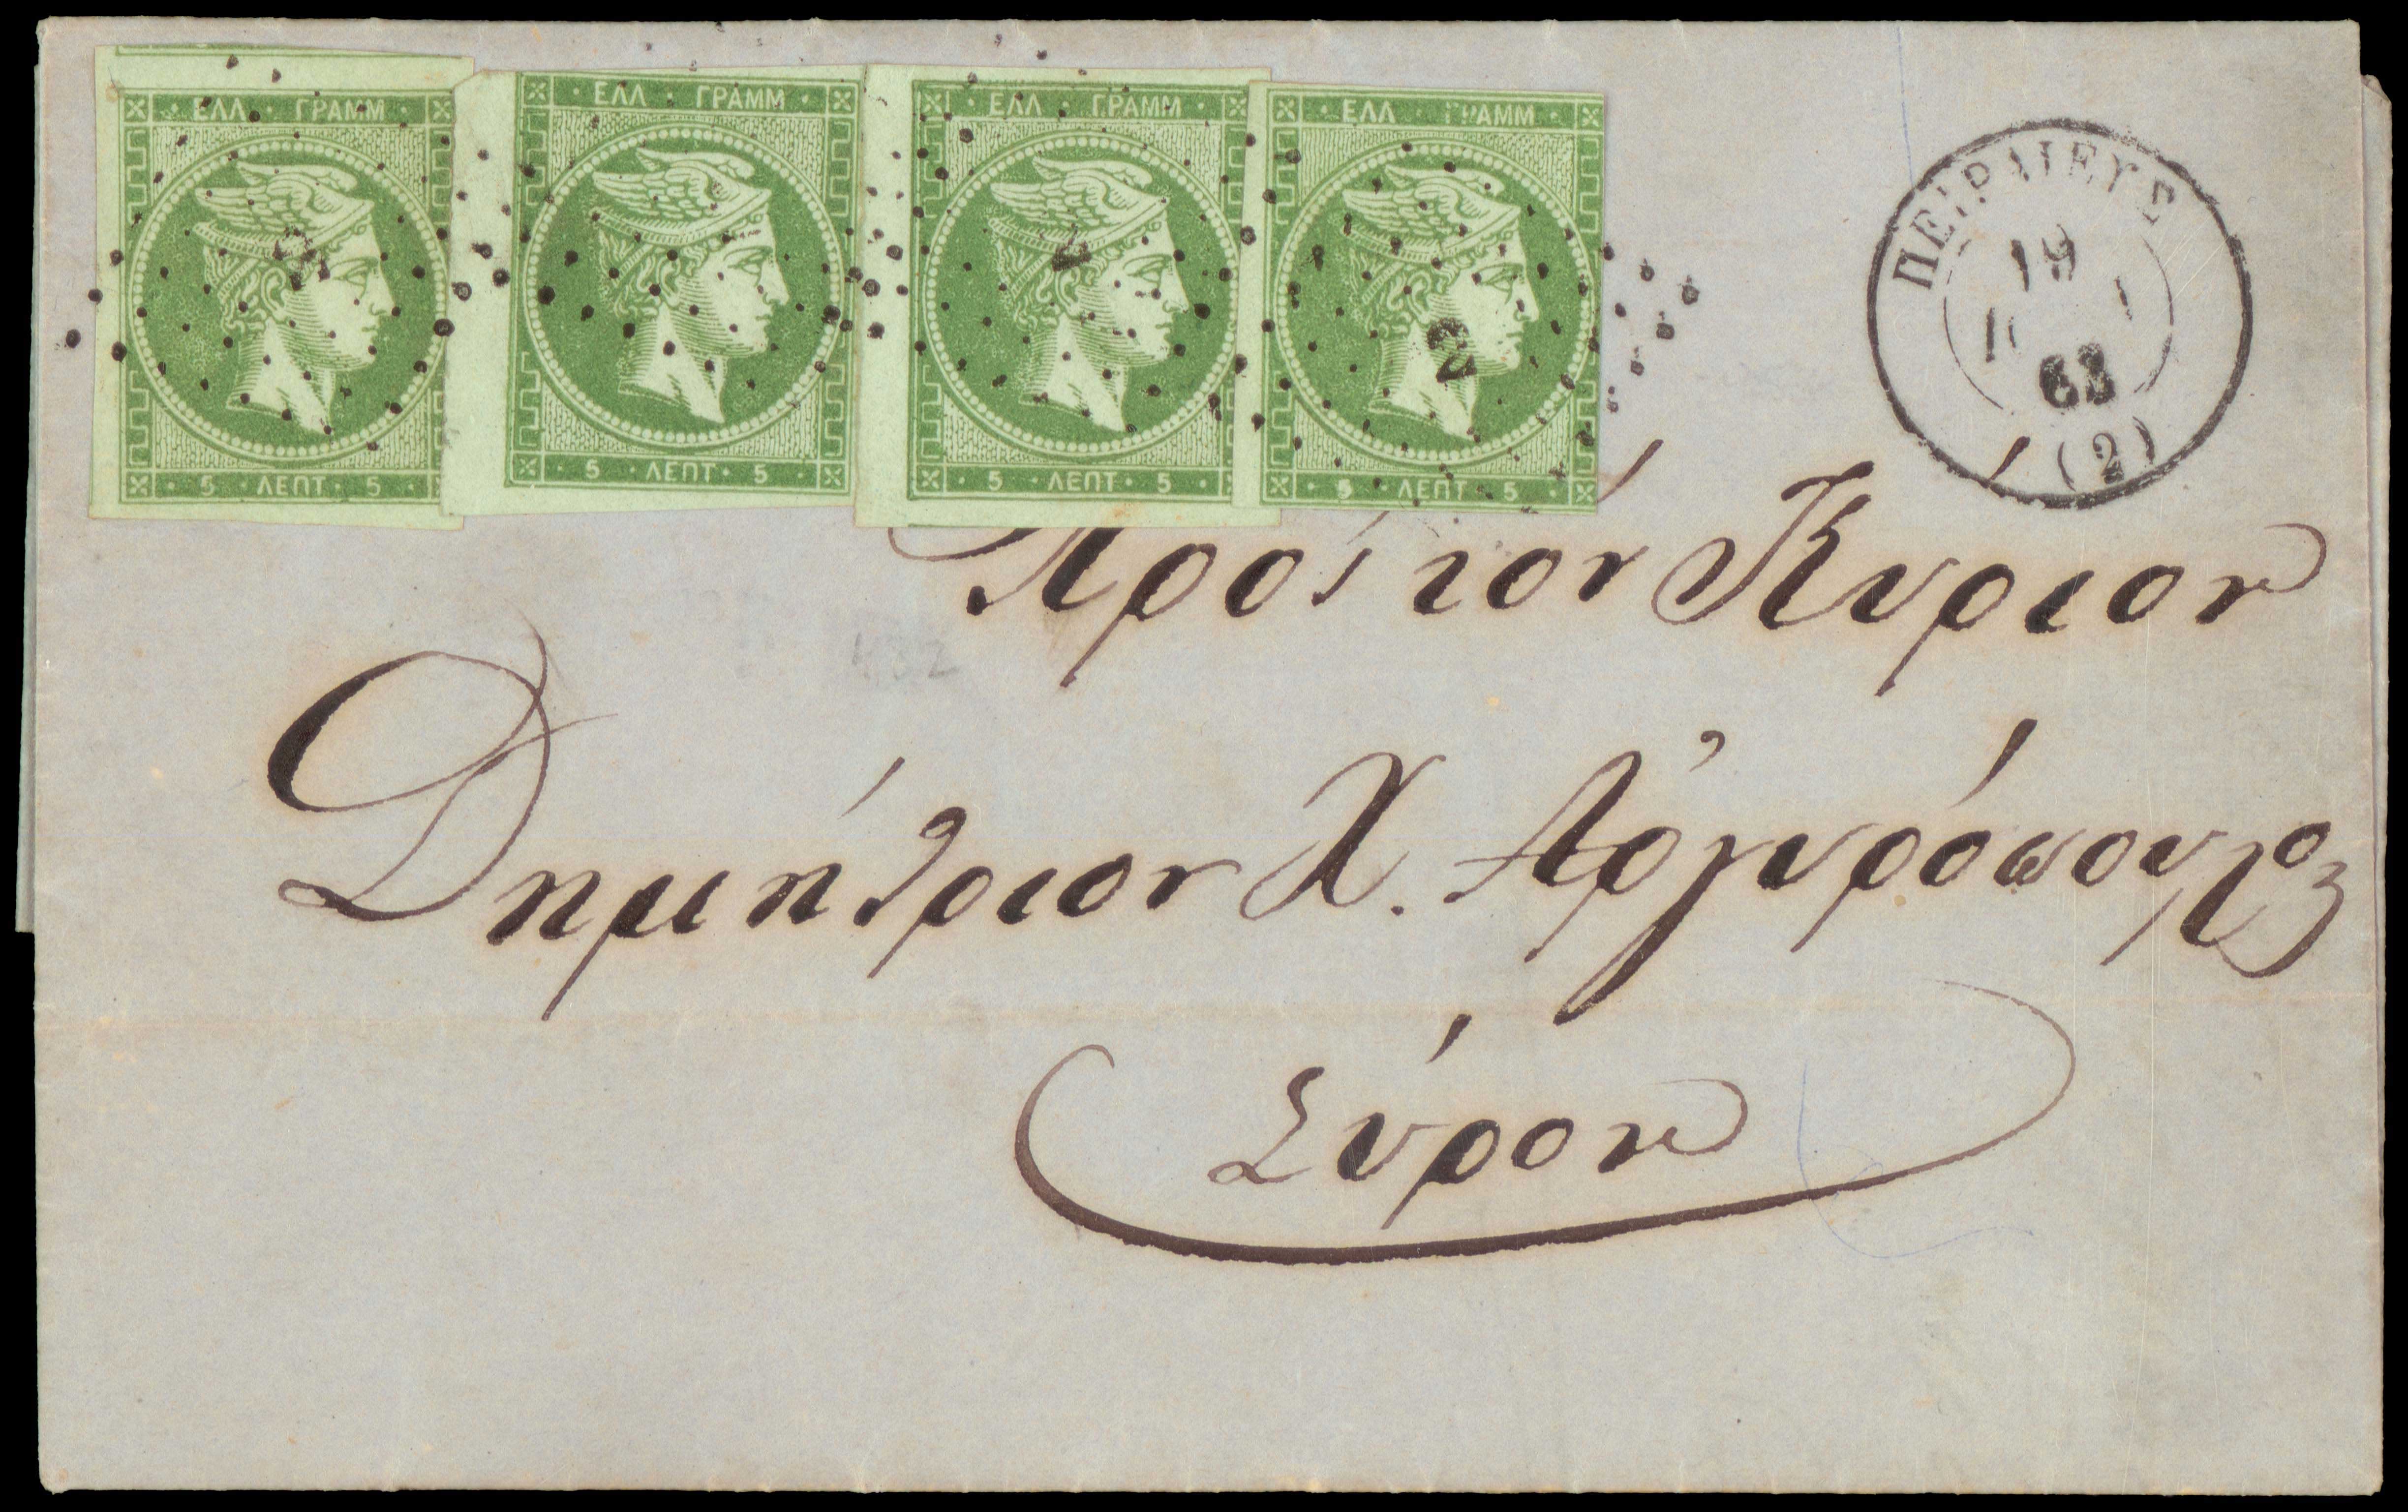 ΕΛΛ · ΓΡΑΜΜ ·
5 · ΛΕΠΤ · 5
ΕΛΛ · ΓΡΑΜΜ ·
5 · ΛΕΠΤ · 5
ΕΛΛ · ΓΡΑΜΜ ·
5 · ΛΕΠΤ · 5
ΕΛΛ · ΓΡΑΜΜ ·
5 · ΛΕΠΤ · 5
2
ΠΕΙΡΑΙΕΥΣ
19
63
(2)
Πρός τόν Κύριον
Δημήτριον Χ. Ἀργυρόπουλον
Σύρον